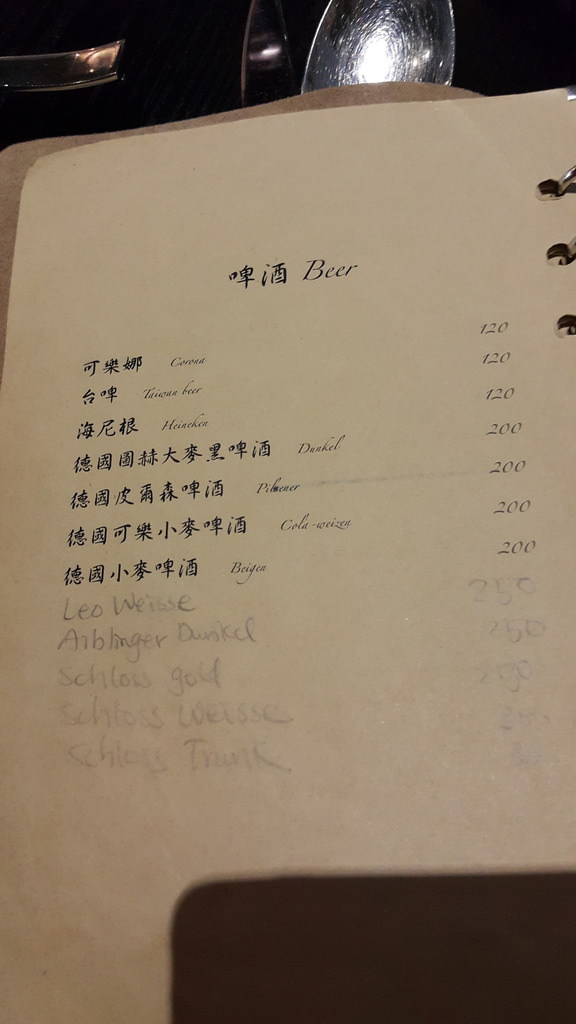 啤酒 Beer
可樂娜 Corona 120
台啤 Taiwan beer 120
海尼根 Heineken 120
德國圖赫大麥黑啤酒 Dunkel 200
德國皮爾森啤酒 Pilsener 200
德國可樂小麥啤酒 Cola-weizen 200
德國小麥啤酒 Beigen 200
Leo Weisse 250
Aiblinger Dunkel 250
Schloss gold
Schloss Weisse
Schloss Trunk